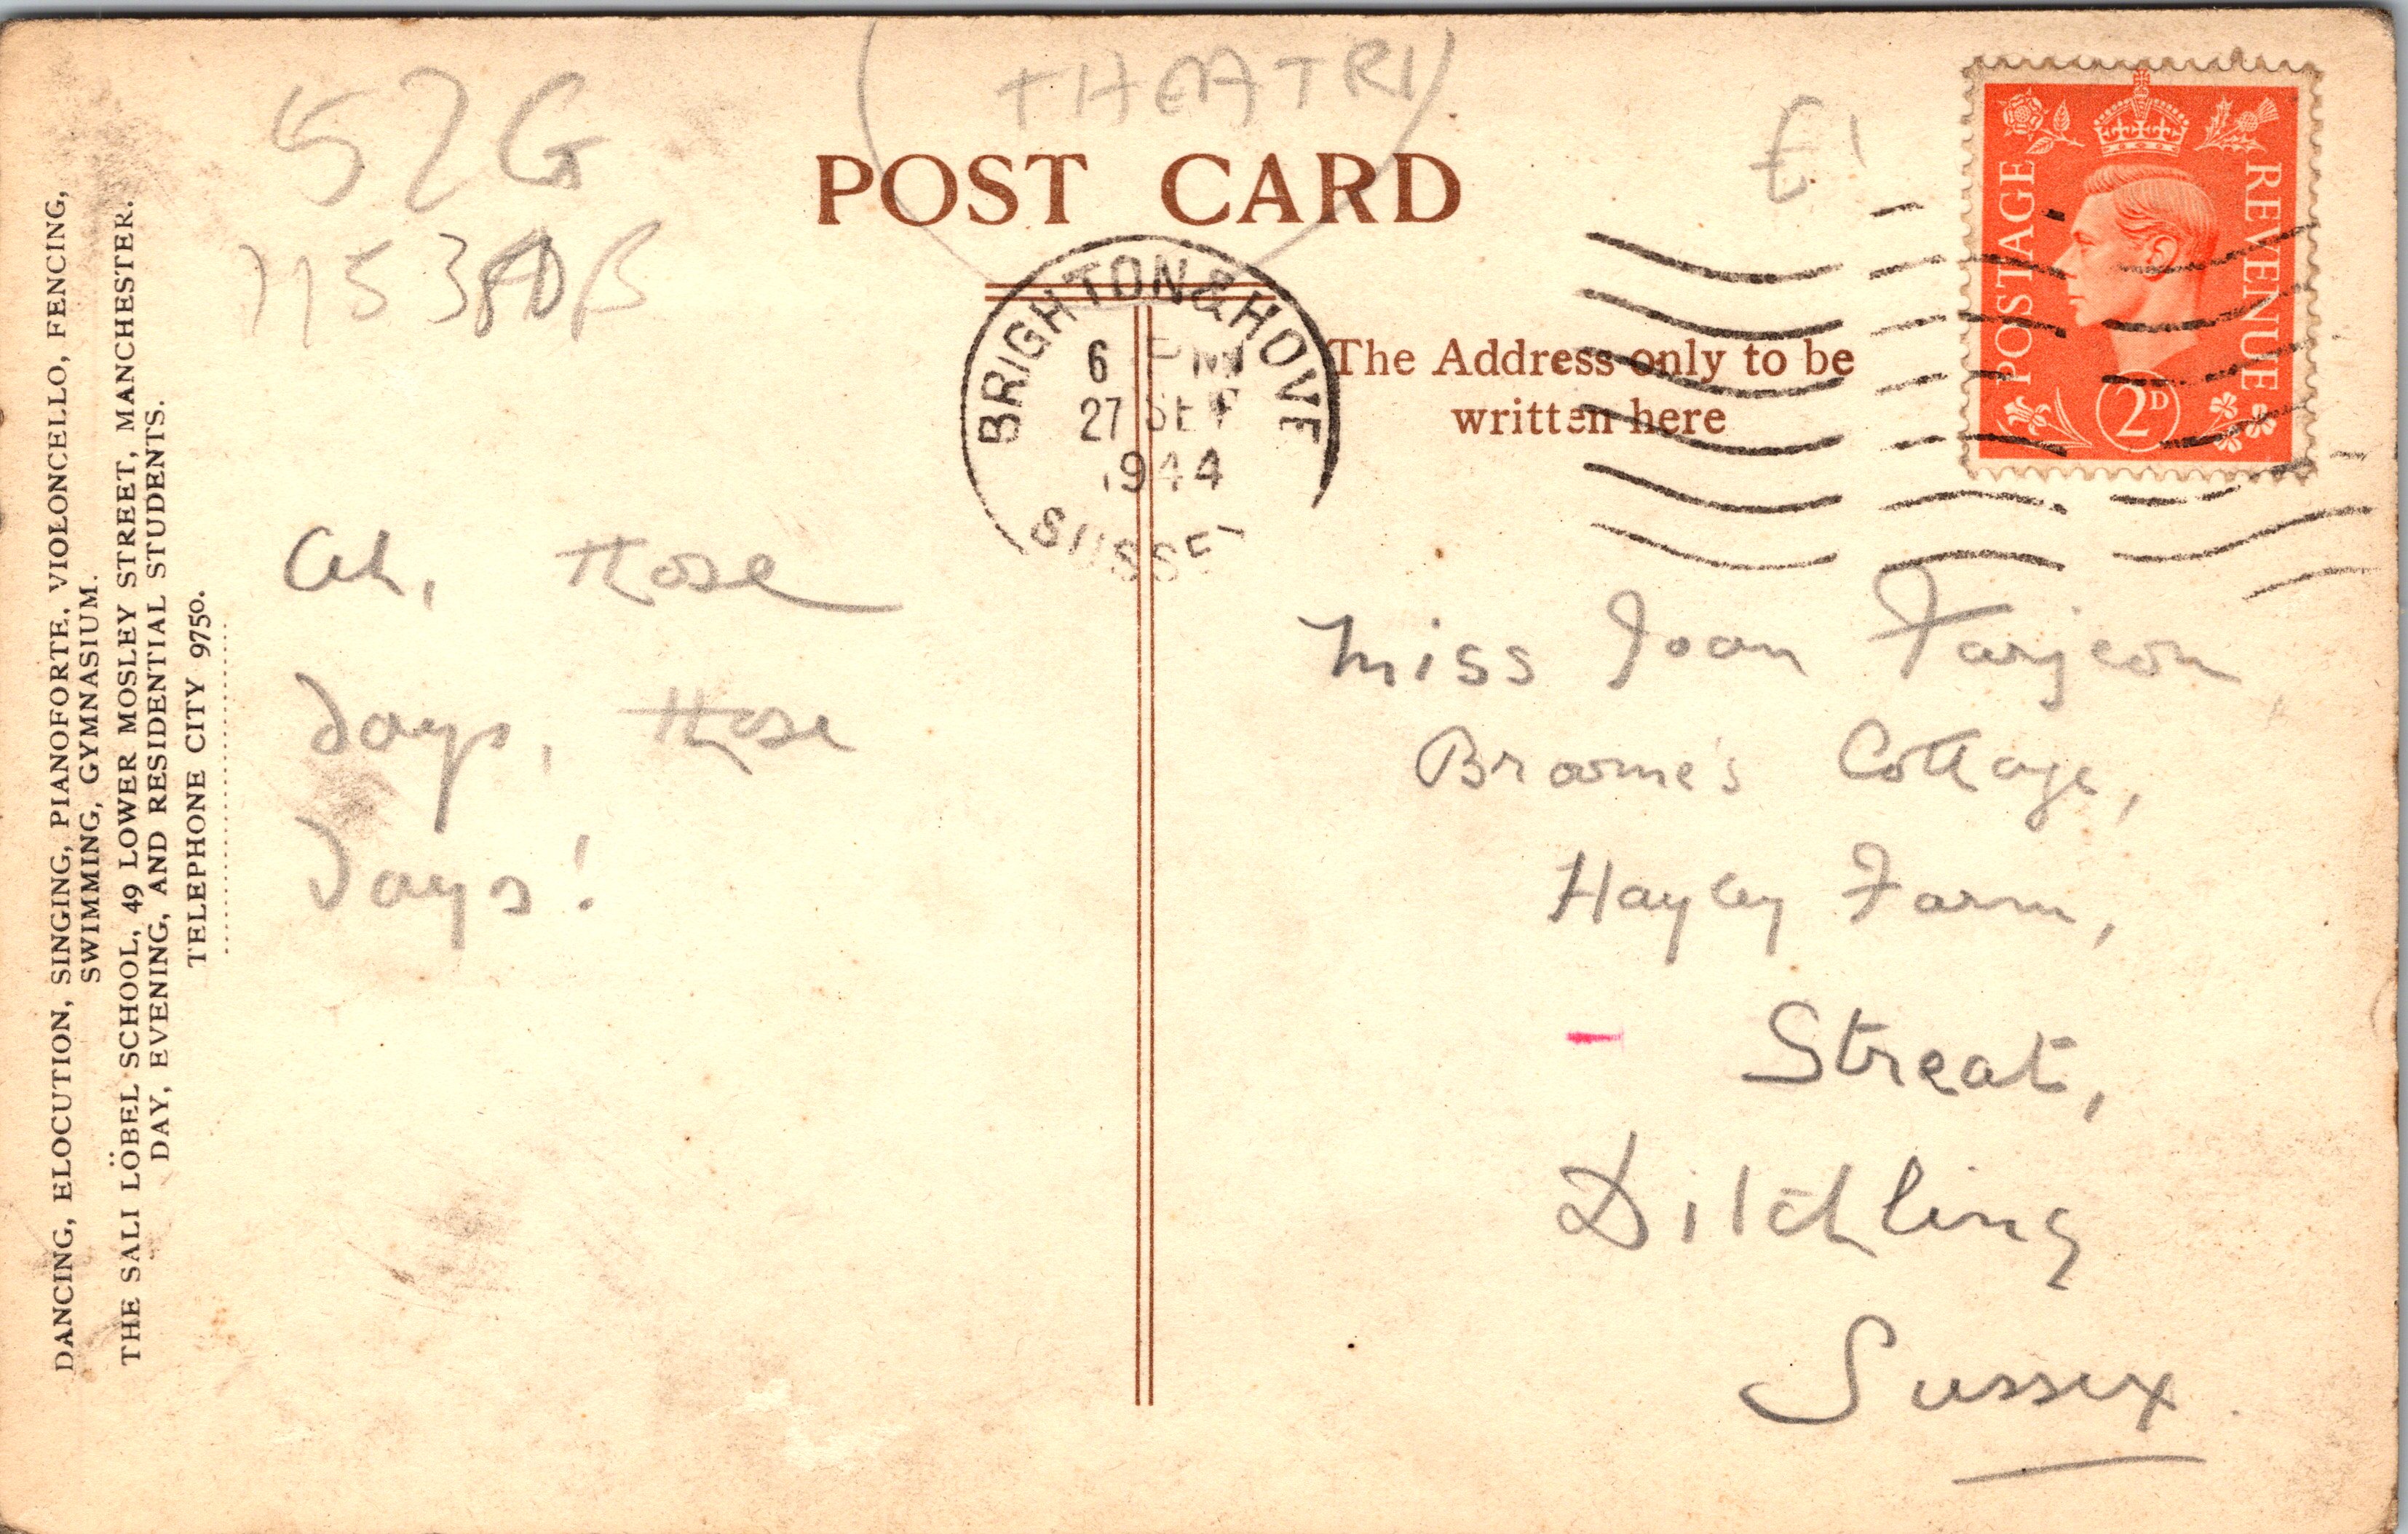 DANCING, ELOCUTION, SINGING, PIANOFORTE, VIOLONCELLO, FENCING,
SWIMMING, GYMNASIUM.
THE SALI LÖBEL SCHOOL, 49 LOWER MOSLEY STREET, MANCHESTER.
DAY, EVENING, AND RESIDENTIAL STUDENTS.
TELEPHONE CITY 9750.
THEATRE
£1
POST CARD
BRIGHTON & HOVE
6 PM
27 SEP
1944
SUSSEX
The Address only to be
written here
POSTAGE
REVENUE
2D
Ah, those
days, those
days!
Miss Joan Farjeon
Broome's Cottage,
Hayley Farm,
Streat,
Ditchling
Sussex